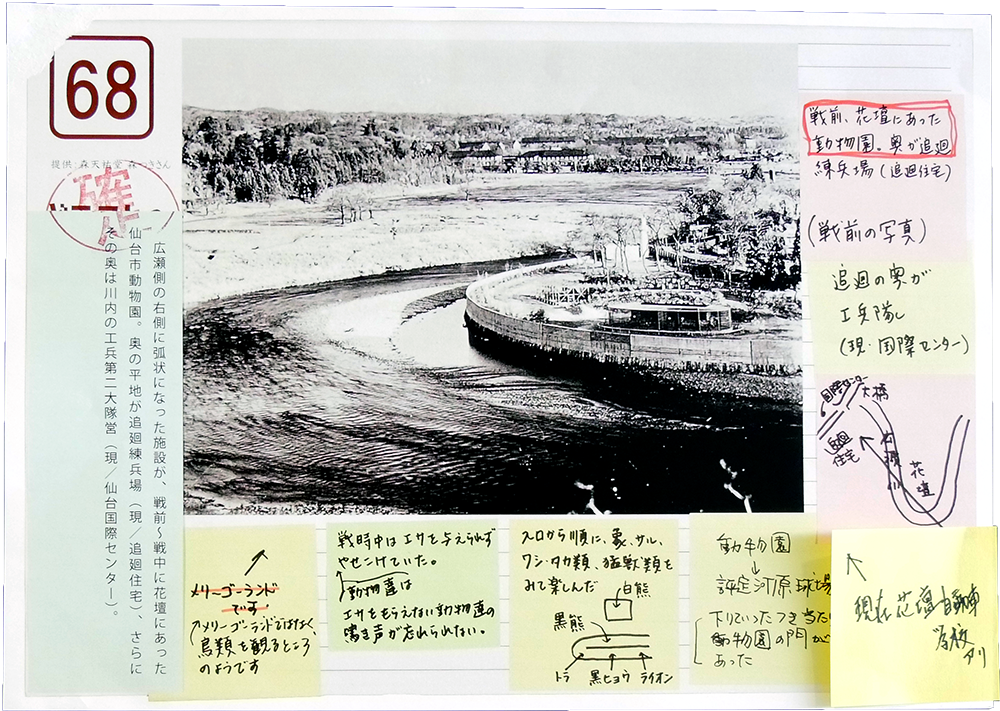 68
提供：森天祐堂 森つきさん
確
広瀬側の右側に弧状になった施設が、戦前～戦中に花壇にあった
仙台市動物園。奥の平地が追廻練兵場（現／追廻住宅）、さらに
その奥は川内の工兵第二大隊営（現／仙台国際センター）。
戦前、花壇にあった
動物園。奥が追廻
練兵場（追廻住宅）
（戦前の写真）
追廻の奥が
工兵隊
（現・国際センター）
国際センター
大橋
追廻
住宅
広瀬川
花壇
メリーゴーランド
です
メリーゴーランドではなく、
鳥類を観るところ
のようです
戦時中はエサを与えられず
やせこけていた。
動物達は
エサをもらえない動物達の
鳴き声が忘れられない。
入口から順に、象、サル、
ワシ・タカ類、猛獣類を
みて楽しんだ
白熊
黒熊
トラ
黒ヒョウ
ライオン
動物園
↓
評定河原球場
下りていったつき当たり
動物園の門が
あった
現在花壇自動車
学校
アリ